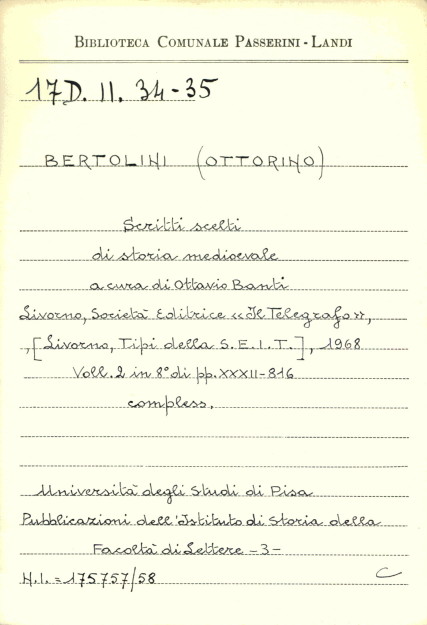 BIBLIOTECA COMUNALE PASSERINI - LANDI
17D. II. 34-35
BERTOLINI (OTTORINO)
Scritti scelti
di storia medioevale
a cura di Ottavio Banti
Livorno, Società Editrice «Il Telegrafo»,
,[Livorno, Tipi della S.E.I.T.], 1968
Voll. 2 in 8° di pp. XXXII-816
compless.
Università degli Studi di Pisa
Pubblicazioni dell'Istituto di Storia della
Facoltà di Lettere -3-
N.I. = 175757/58
C